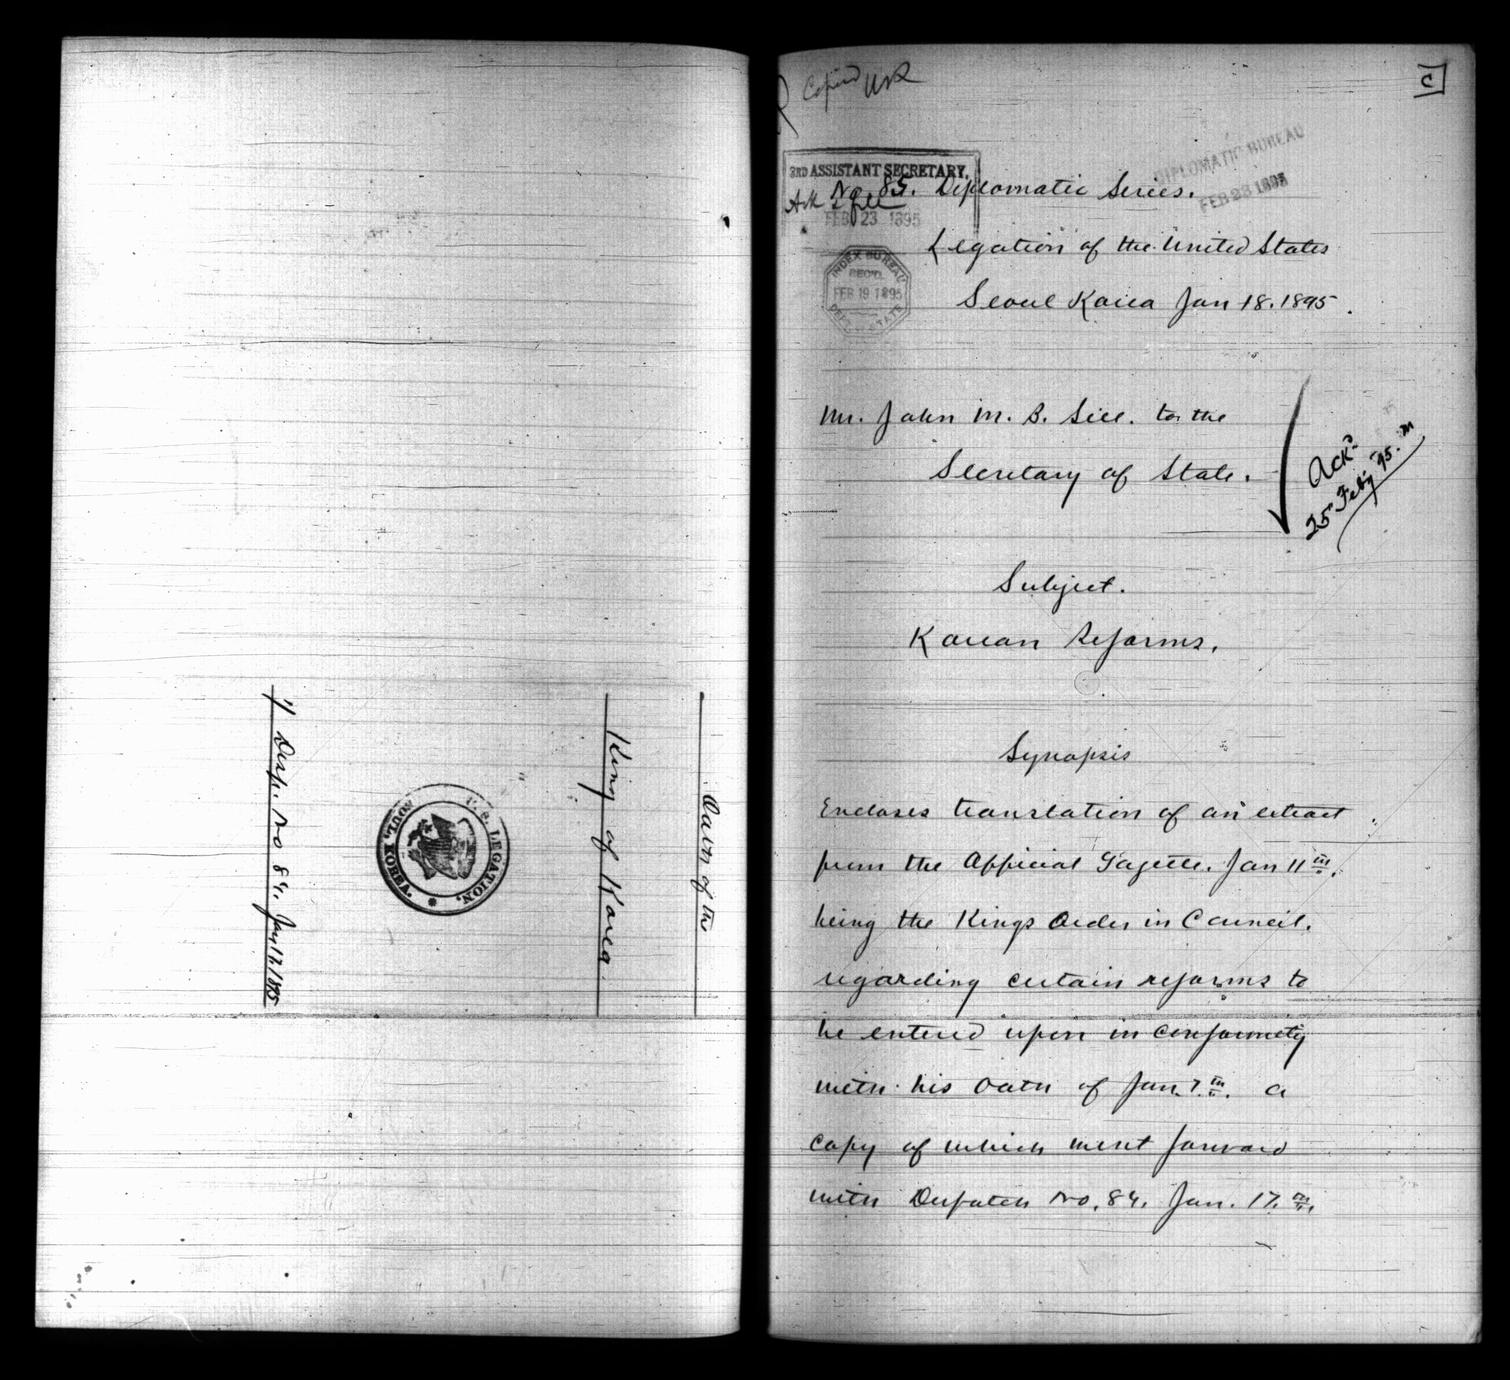 Oath of the
King of Korea
U.S. LEGATION,
SOUL, KOREA.
1/ Desp. No 84. Jan 17, 1895
Copied
C
3RD ASSISTANT SECRETARY,
FEB 23 1895
DIPLOMATIC BUREAU
FEB 23 1895
No. 85. Diplomatic Series.
INDEX BUREAU
REC'D.
FEB 19 1895
DEPT. STATE
Legation of the United States
Seoul Korea Jan 18. 1895.
Mr. John M. B. Sill. to the
Secretary of State.
Ack'd
25 Feby '95.
Subject.
Korean Reforms.
Synopsis
Encloses translation of an extract
from the Official Gazette. Jan 11th,
being the Kings Order in Council.
regarding certain reforms to
be entered upon in conformity
with his oath of Jan. 7.th. a
copy of which went forward
with Despatch No. 84. Jan. 17.th.